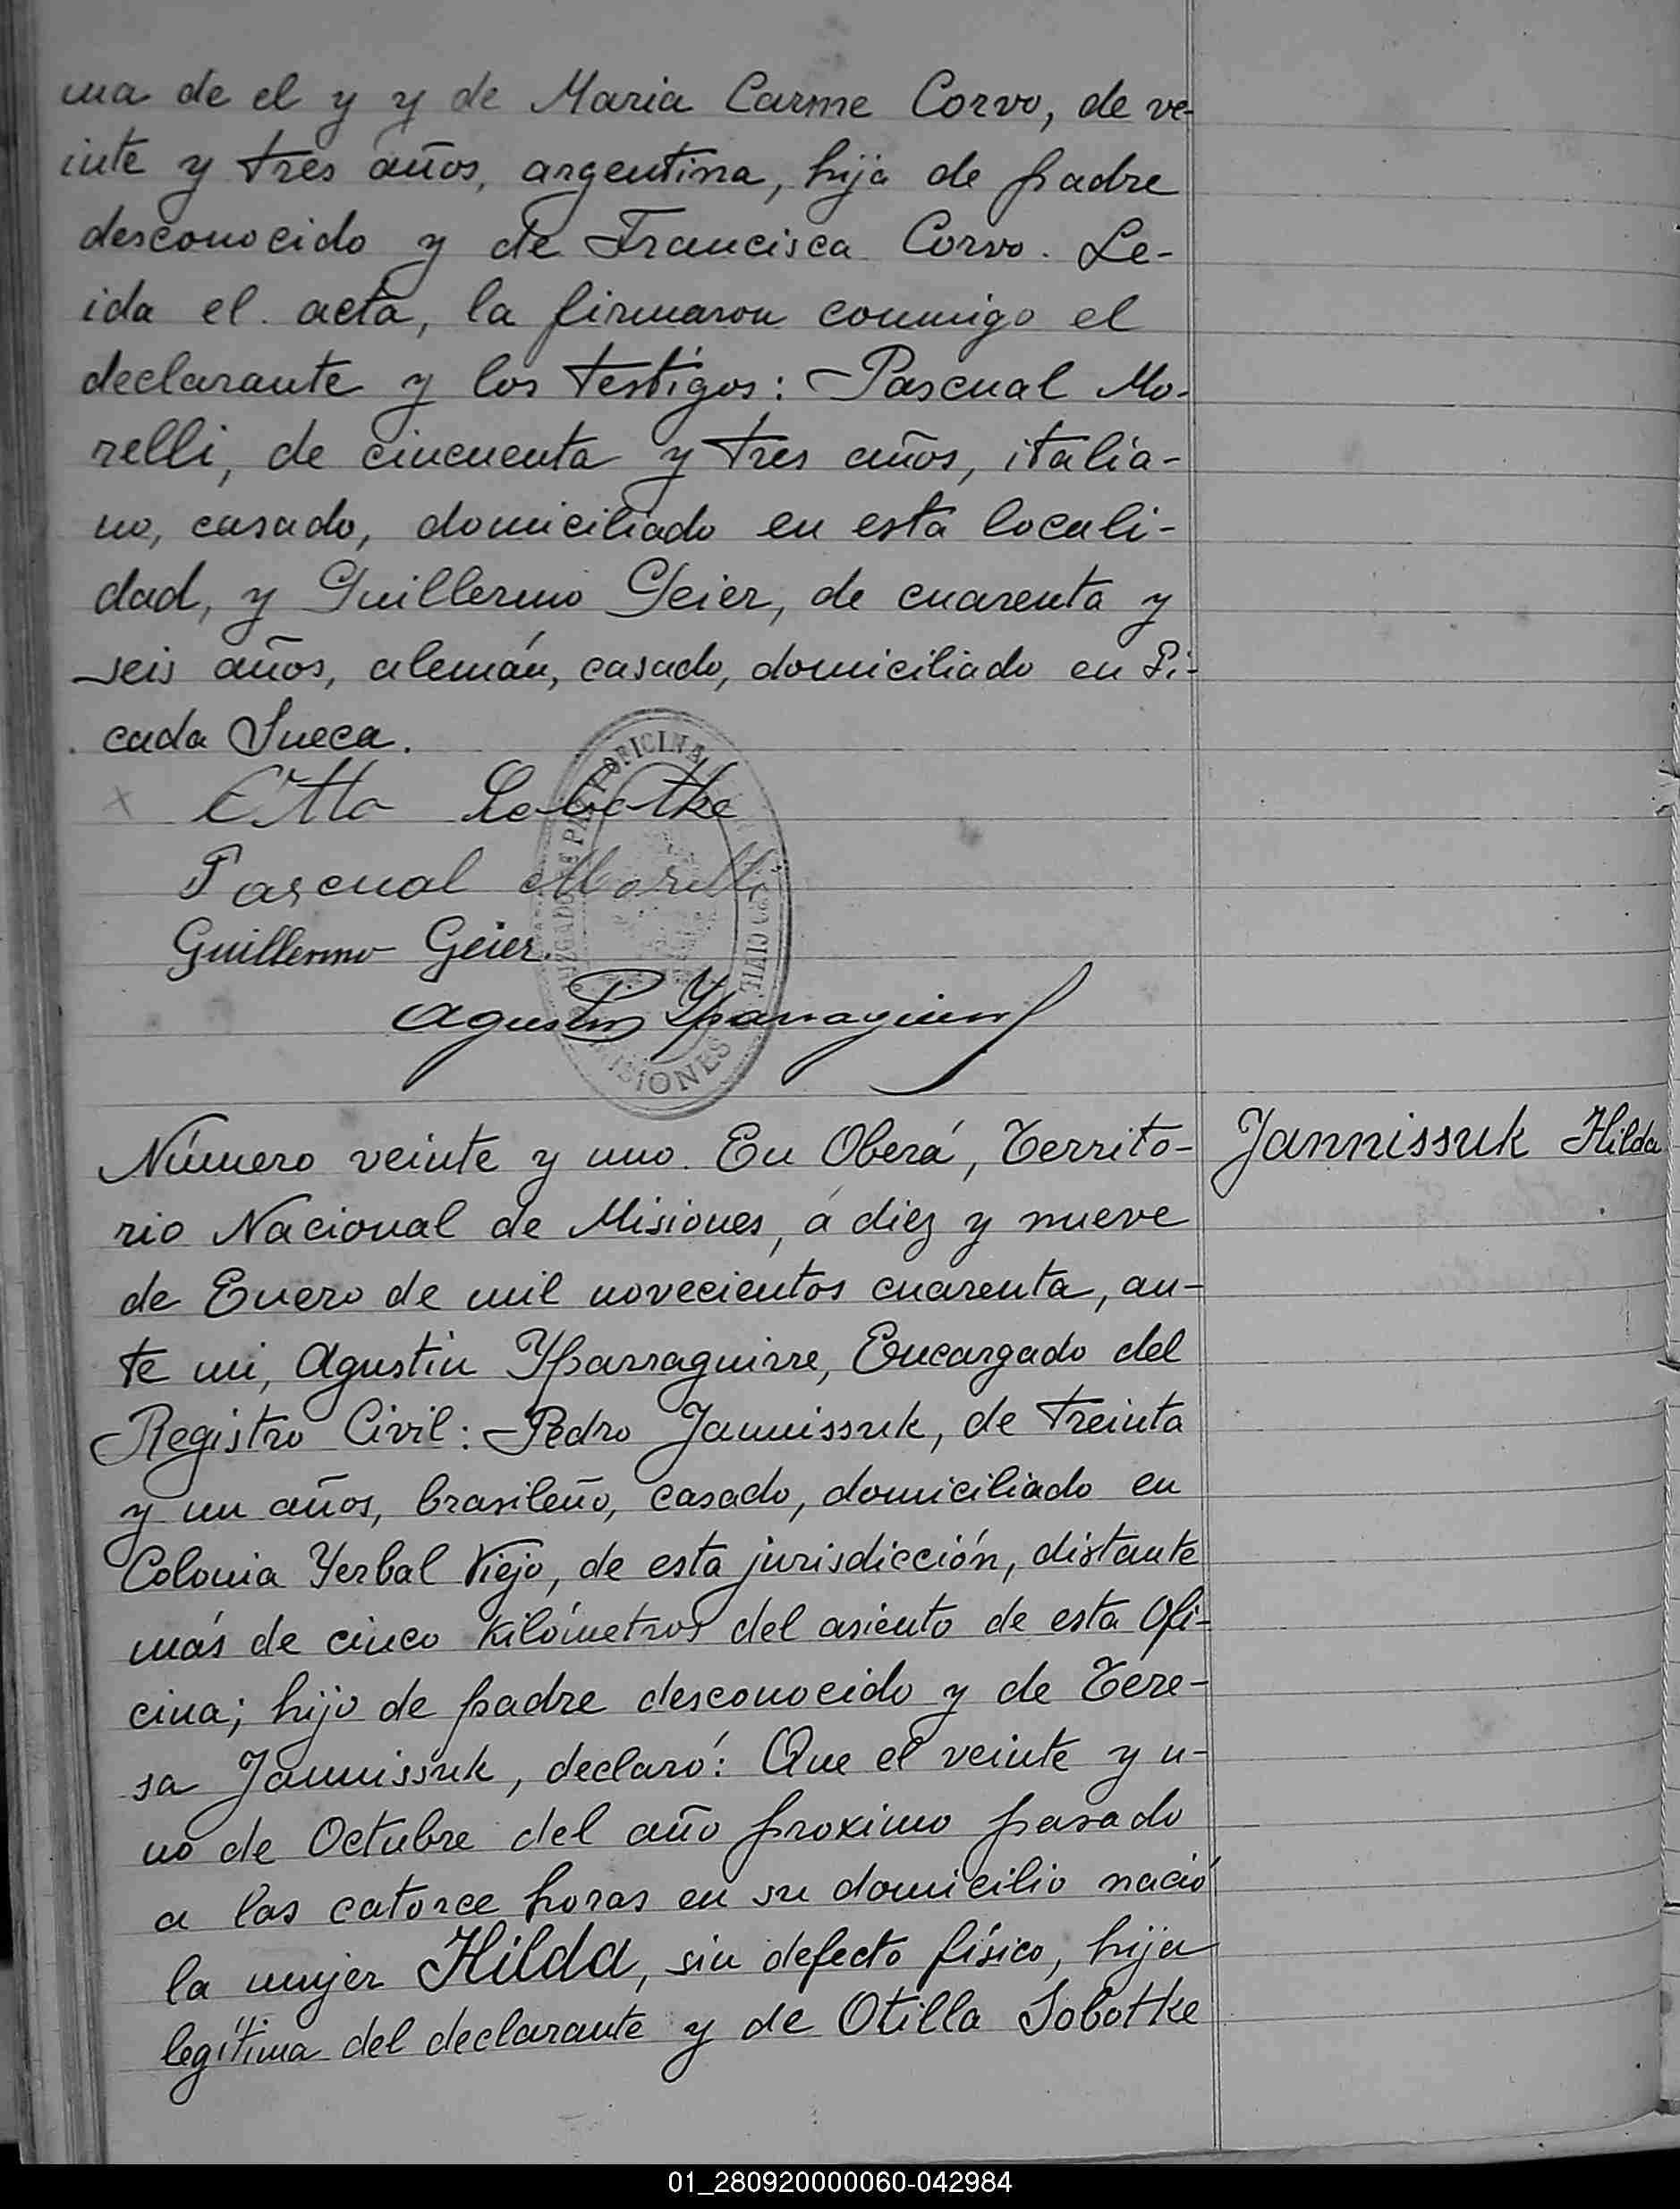 ma de el y y de Maria Carme Corvo, de ve-
inte y tres años, argentina, hija de padre
desconocido y de Francisca Corvo. Le-
ida el acta, la firmaron conmigo el
declarante y los testigos: Pascual Mo-
relli, de cincuenta y tres años, italia-
no, casado, domiciliado en esta locali-
dad, y Guillermo Geier, de cuarenta y
seis años, alemán, casado, domiciliado en Pi-
cada Sueca.
Otto Sobottke
Pascual Morelli
Guillermo Geier.
Agustin Yparraguirre
OFICINA
CIVIL
MISIONES
Número veinte y uno. En Oberá, Territo-
Jannissuk Hilda
rio Nacional de Misiones, á diez y nueve
de Enero de mil novecientos cuarenta, an-
te mi, Agustin Yparraguirre, Encargado del
Registro Civil: Pedro Jannissuk, de treinta
y un años, brasileño, casado, domiciliado en
Colonia Yerbal Viejo, de esta jurisdicción, distante
más de cinco kilómetros del asiento de esta Ofi-
cina; hijo de padre desconocido y de Tere-
sa Jannissuk, declaró: Que el veinte y u-
no de Octubre del año proximo pasado
a las catorce horas en su domicilio nació
la mujer Hilda, sin defecto físico, hija
legítima del declarante y de Otilla Sobottke
01_280920000060-042984